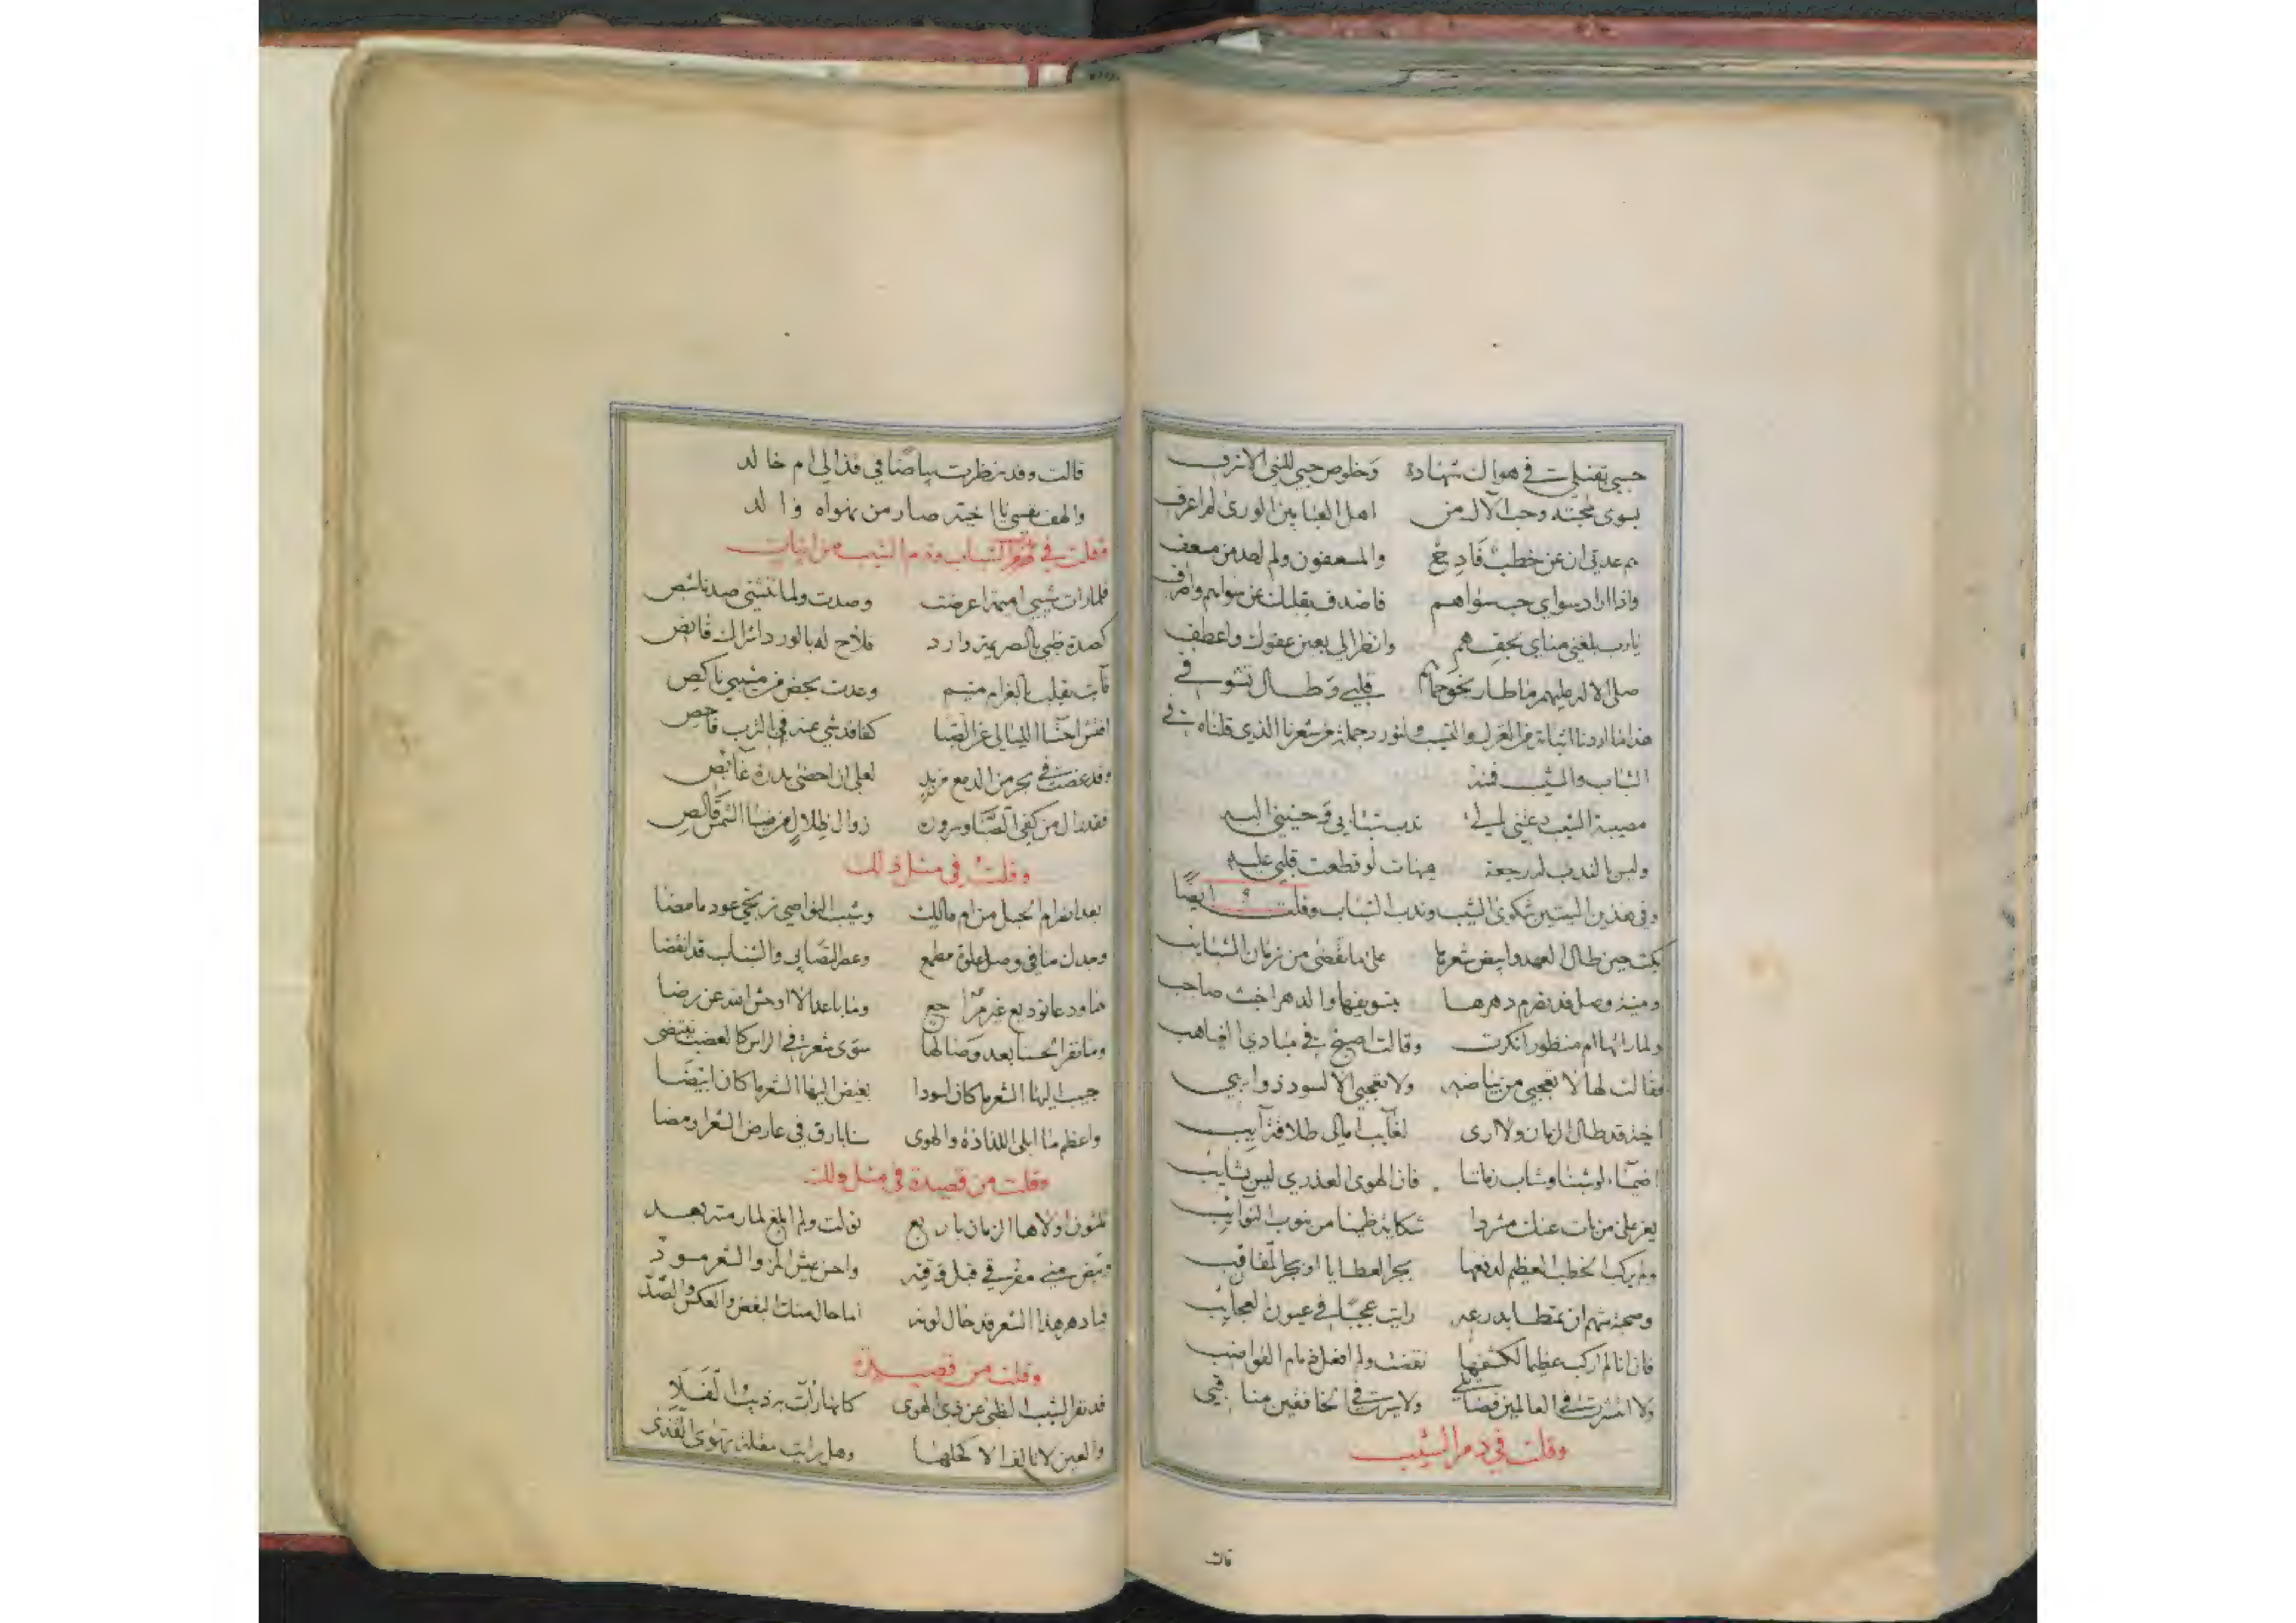 حسبي بفضلي في هواك شهادة وخلوص حبي للنبي الاشرف
بسوى محبته وحب الآل من اهل العبا بين الورى لم اعرف
هم عدتي ان عن خطب فادح والمسعفون ولم اجد من مسعف
واذا اراد سواي حب سواهم فاصدف بقلبك عن سواهم واصرف
يارب بلغني مناي بحقهم وانظر الي بعين عفوك واعطف
صلى الاله عليهم ما طار نحوهم قلبي وطال تشوفي
هذا ما اردنا اثباته من الغزل والنسيب ولنورد جملة من شعرنا الذي قلناه في
الشباب والمشيب فمنه
مصيبة الشيب دعتني الى ندب شبابي وحنيني اليه
وليس بالندب له رجعة هيهات لو قطعت قلبي عليه
وفي هذين البيتين شكوى الشيب وندب الشباب وقلت ايضا
بكت حين طال العهد وابيض شعرها على ما تقضى من زمان الشبايب
ومنية وصل قد تصرم دهرها بتسويفها والدهر اخبث صاحب
ولما راتها ام منظور انكرت وقالت اصبح في مبادي الغياهب
فقالت لها لا تعجبي من بياضه ولا تعجبي الا لسود ذوايبي
اخية قد طال الزمان ولا ارى لغايب امالي طلاقة آيب
اضيماء لو شبنا وشاب زماننا فان الهوى العذري ليس بشايب
يعز على من بات عنك مشردا شكاية ظمنا من نوب النوايب
ولم يركب الخطب العظيم لدفعها بجر العطايا او بجر المقانب
وصحبة شهم ان تمطا بدرعه رايت عجبا في عيون العجايب
فان انا لم اركب عظيما لكشفها نقضت ولم افعل ذمام القواضب
ولا انتشرت في العالمين فضايلي ولا سرت في الخافقين مناقبي
وقلت في ذم الشيب
قالت
قالت وقد نظرت بياضا في قذالي ام خالد
والهف نفسي يا اخية صار من نهواه والد
وقلت في الشباب وذم الشيب من ابيات
فلما رات شيبي اميمة اعرضت وصدت ولما تنثني صد ناشص
كصدة ظبي بالصريمة وارد فلاح له بالورد اشراك قانص
فآبت بقلب بالغرام متيم وعدت بحض من مشيبي ناكص
افتش احشاء الليالي عن الصبا كفاقد شي عنه في الترب فاحص
وقد غصت في بحر من الدمع مزبد لعلي ان احضى بدرة غايص
فقد زال من كفي الصبا وسروره زوال ظلال من ضيا الشمس قالص
وقلت في مثل ذلك
بعد انصرام الحبل من ام مالك وشيب النواصي نرتجي عود ما مضا
وهل لك منا في وصل علوة مطمع وعصر التصابي والشباب قد انقضا
هما ودعا توديع غير مراجع وما باعدا لا اوحش الله عن رضا
وما نفر الحسنا بعد وصالها سوى شعرة في الراس كالعضب تنتضى
حبيب اليها الشعر ما كان اسودا بغيض اليها الشعر ما كان ابيضا
واعظم ما ابلى اللذاذة والهوى سنا بارق في عارض الشعر اومضا
وقلت من قصيدة في مثل ذلك
ثلثون اولاها الزمان باربع تولت ولم ابلغ لما رمته بعد
وتبيض مني مفرقي قبل وقته واحسن عيش المرء والشعر مسود
فيا دهر هذا الشعر قد حال لونه اما حال منك البغض والعكس والصد
وقلت من قصيدة
قد نفر الشيب الظبي عن ذي الهوى كانما رات به ذيب الفلا
والعين لا تالف الا كحلها وهل رايت مقلة تهوى القذى